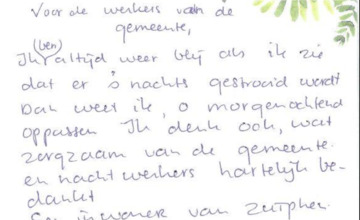 Voor de werkers van de
gemeente,
(ben)
Ik altijd weer blij als ik zie
dat er 's nachts gestrooid wordt
Dan weet ik, o morgenochtend
oppassen Ik denk ook, wat
zorgzaam van de gemeente.
en nachtwerkers hartelijk be-
dankt
Een inwoner van Zutphen.